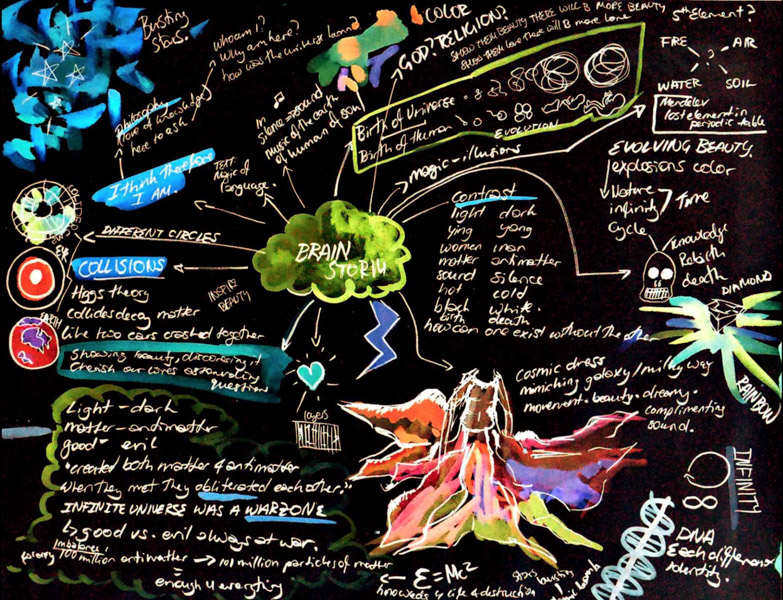 Bursting
Stars.
who am I?
Why am I here?
how was the universe born?
Philosophy
love of knowledge
here to ask
I think Therefore
I AM.
TEXT:
Magic of
Language.
In
silence = sound
music of the earth
of human of soul
COLOR
GOD? RELIGION?
SHOW THEM BEAUTY THERE WILL B MORE BEAUTY
SHOW THEM love there will B more love
Birth of Universe
Birth of Human
EVOLUTION
magic - illusions
5th Element?
FIRE
AIR
?
WATER
SOIL
Mendelev
last element in
periodic table
EVOLVING BEAUTY.
explosions color
Nature
infinity
Cycle
Time
Knowledge
Rebirth
death
DIAMOND
RAINBOW
BRAIN
STORM
contrast
light dark
ying yang
women man
matter antimatter
sound silence
hot cold
black white.
birth death
how can one exist without the other
DIFFERENT CIRCLES
EYE
COLLISIONS
Higgs theory
Collides decay matter
EARTH
like two cars crashed together
INSPIRE
BEAUTY
Showing beauty, discovering it
Cherish our lives
questions
layers
Cosmic dress
mimicking galaxy / milky way
movement. beauty. dreamy.
complimenting
sound.
light - dark
matter - antimatter
good - evil
"created both matter & antimatter
when they met They obliterated each other."
INFINITE UNIVERSE WAS A WARZONE
good vs. evil always at war.
Imbalance,
for every 100 million antimatter → 101 million particles of matter
=
enough 4 everything
← E=Mc²
4 life & destruction
stars bursting
bomb
INFINITY
∞
DNA
Each different
identity.